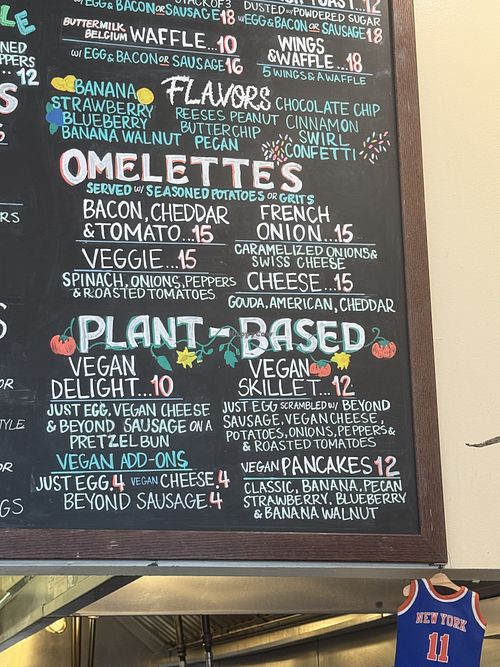 STACK OF 3
W/ EGG & BACON OR SAUSAGE 18
BUTTERMILK BELGIUM WAFFLE...10
W/ EGG & BACON OR SAUSAGE 16
TOAST...12
DUSTED W/ POWDERED SUGAR
W/ EGG & BACON OR SAUSAGE 18
WINGS
& WAFFLE...18
5 WINGS & A WAFFLE
12
FLAVORS
BANANA
STRAWBERRY
BLUEBERRY
BANANA WALNUT
REESES PEANUT
BUTTERCHIP
PECAN
CHOCOLATE CHIP
CINNAMON
SWIRL
CONFETTI
OMELETTE'S
SERVED W/ SEASONED POTATOES OR GRITS
BACON, CHEDDAR
& TOMATO...15
VEGGIE...15
SPINACH, ONIONS, PEPPERS
& ROASTED TOMATOES
FRENCH
ONION...15
CARAMELIZED ONIONS &
SWISS CHEESE
CHEESE...15
GOUDA, AMERICAN, CHEDDAR
PLANT-BASED
VEGAN
DELIGHT...10
JUST EGG, VEGAN CHEESE
& BEYOND SAUSAGE ON A
PRETZEL BUN
VEGAN ADD-ONS
JUST EGG.4 VEGAN CHEESE.4
BEYOND SAUSAGE.4
VEGAN
SKILLET...12
JUST EGG SCRAMBLED W/ BEYOND
SAUSAGE, VEGAN CHEESE,
POTATOES, ONIONS, PEPPERS &
& ROASTED TOMATOES
VEGAN PANCAKES 12
CLASSIC, BANANA, PECAN
STRAWBERRY, BLUEBERRY
& BANANA WALNUT
NEW YORK
11